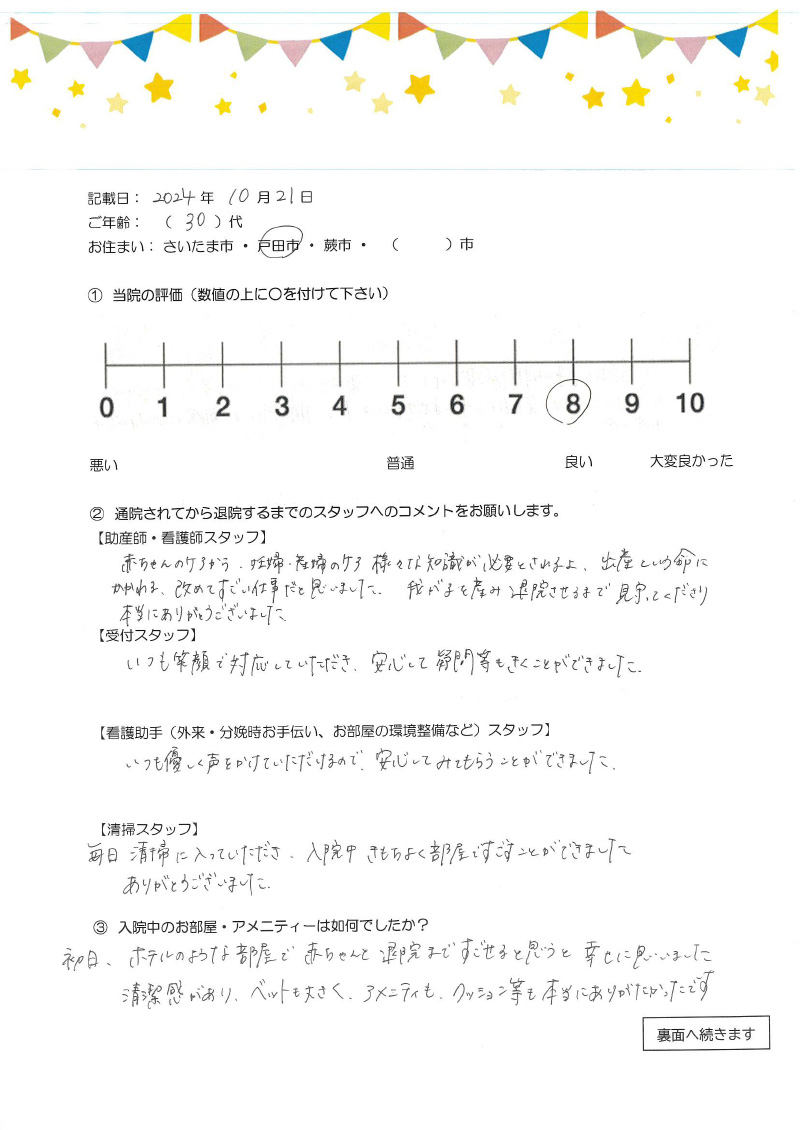 記載日： 2024 年 10 月 21 日
ご年齢： （ 30 ）代
お住まい： さいたま市 ・ 戸田市 ・ 蕨市 ・ （ ）市
① 当院の評価（数値の上に〇を付けて下さい）
0 1 2 3 4 5 6 7 8 9 10
悪い 普通 良い 大変良かった
② 通院されてから退院するまでのスタッフへのコメントをお願いします。
【助産師・看護師スタッフ】
赤ちゃんのケアから、妊婦・産婦のケア 様々な知識が必要とされるよ、出産という命に
かかわる、改めてすごい仕事だと思いました。 我が子を産み 退院させるまで 見守ってくださり
本当にありがとうございました
【受付スタッフ】
いつも笑顔で対応していただき、安心して疑問等もきくことができました。
【看護助手（外来・分娩時お手伝い、お部屋の環境整備など）スタッフ】
いつも優しく声をかけていただけるので、安心してみてもらうことができました。
【清掃スタッフ】
毎日 清掃に入っていただき、入院中 きもちよく部屋ですごすことができました
ありがとうございました。
③ 入院中のお部屋・アメニティーは如何でしたか？
初日、ホテルのような部屋で 赤ちゃんと 退院まで すごせると思うと 幸せに思いました
清潔感があり、ベットも大きく、アメニティも、クッション等も本当にありがたかったです
裏面へ続きます